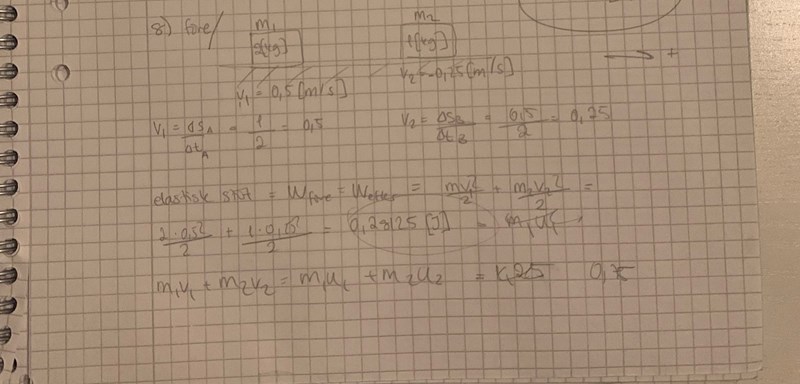 8) före/
m₁
m₂
2[kg]
1[kg]
→ +
v₁ = 0,5 [m/s]
v₂ = -0,25 [m/s]
v₁ = ΔS_A/Δt_A = 1/2 = 0,5
v₂ = ΔS_B/Δt_B = 0,5/2 = 0,25
elastisk stöt = W före = W efter = mv₁²/2 + m₂v₂²/2 =
2·0,5²/2 + 1·0,25²/2 = 0,28125 [J] =
m₁v₁ + m₂v₂ = m₁u₁ + m₂u₂ =